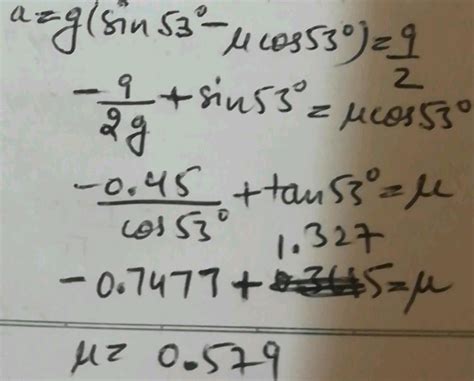 a = g(sin 53° - μ cos 53°) = 9/2
- 9/2g + sin 53° = μ cos 53°
-0.45/cos 53° + tan 53° = μ
1.327
-0.7477 + 5 = μ
μ = 0.579